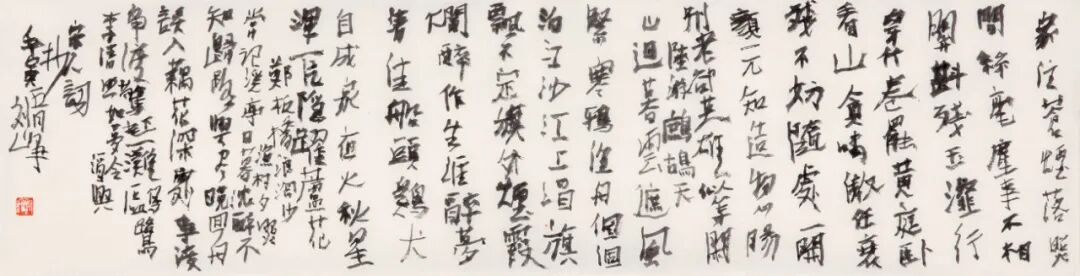 家住蒼煙落照
間絲毫塵事不相
關斟殘玉瀣行
穿竹卷罷黄庭卧
看山貪嘯傲任衰
殘不妨隨處一開
顏元知造物心腸
別老卻英雄似等閒
陸游鷓鴣天
山迥暮雲遮風
緊寒鴉渚舟個個
泊江沙江上酒旗
飄不定旗外煙霞
爛醉作生涯醉夢
清佳船頭鷄犬
自成家夜火秋星
渾一片隱躍蘆花
鄭板橋浪淘沙
漁村夕照
常記溪亭日暮沈醉不
知歸路興盡晚回舟
誤入藕花深處爭渡
爭渡驚起一灘鷗鷺
李清照如夢令
宋人詞
抄
壬寅五月